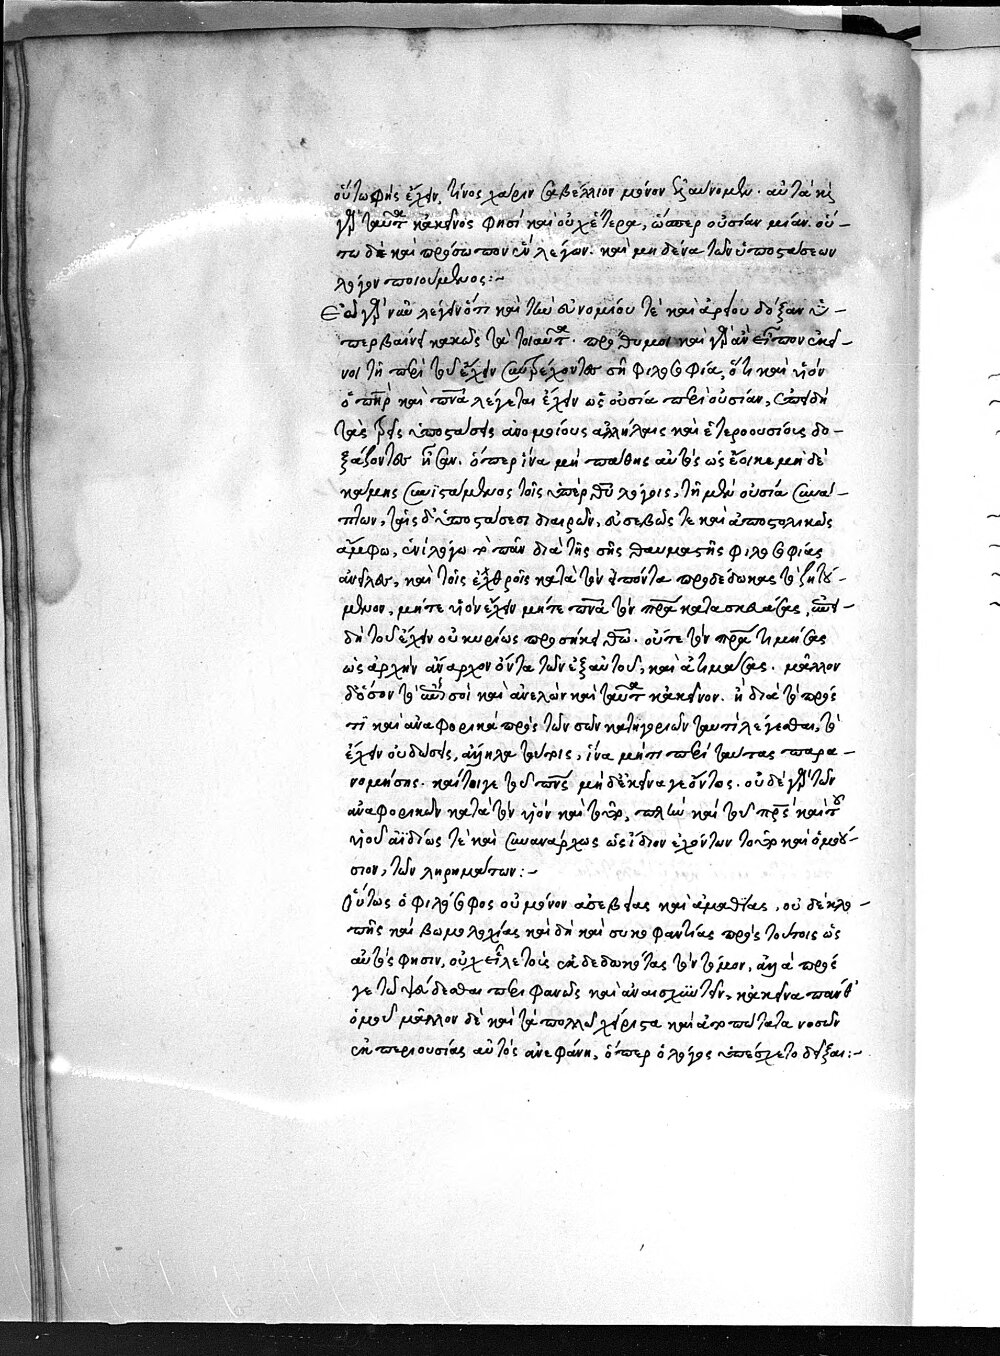 οὕτω φῂς ἔχειν, τίνος χάριν Σαβέλλιον μόνον αὐτὰ
γὰρ ταῦτα κἀκεῖνός φησι καὶ οὐχ ἕτερα, ὥσπερ οὐσίαν μίαν. οὕ-
τω δὲ καὶ πρόσωπον ἓν λέγων. καὶ μηδένα τῶν ὑποστάσεων
λόγον ποιούμενος:~
Ἐῶ γὰρ νῦν λέγειν ὅτι καὶ τὴν Εὐνομίου τὲ καὶ Ἀρείου δόξαν ὑ-
περβαίνει κακῶς τὰ τοιαῦτα. πρόθυμοι καὶ γὰρ ἂν εἶπον ἐκεῖ-
νοι τῇ περὶ τοῦ ἔχειν συντρέχοντες σῇ φιλοσοφίᾳ, ὅτι καὶ υἱὸν
ὁ πατὴρ καὶ πνεῦμα λέγεται ἔχειν ὡς οὐσία περὶ οὐσίαν, ἐπειδὴ
τὰς τρεῖς ὑποστάσεις ἀνομοίους ἀλλήλαις καὶ ἑτεροουσίους δο-
ξάζοντες ἦσαν. ὅπερ ἵνα μὴ πάθῃς αὐτὸς ὡς ἔοικε μηδὲ
κάμῃς συνιστάμενος τοῖς ὑπὲρ θεοῦ λόγοις, τῇ μὲν οὐσίᾳ συνά-
πτων, ταῖς δ' ὑποστάσεσι διαιρῶν, εὐσεβῶς τε καὶ ἀποστολικῶς
ἄμφω, ἑνὶ λόγῳ τὸ πᾶν διὰ τῆς σῆς θαυμαστῆς φιλοσοφίας
ἀνεῖλες, καὶ τοῖς ἐχθροῖς κατὰ τὸν εἰπόντα προδέδωκας τὸ ζητού-
μενον, μήτε υἱὸν ἔχειν μήτε πνεῦμα τὸν πατέρα κατασκευάσας,
δὴ τοῦ ἔχειν οὐ κυρίως προσήκει θεῷ. οὔτε τὸν πατέρα τιμήσας
ὡς ἀρχὴν ἄναρχον ὄντα τῶν ἐξ αὐτοῦ, καὶ ἀτιμάσας. μᾶλλον
δ' ὅσον τὸ ἐπὶ σοὶ καὶ ἀνελὼν καὶ ταῦτα κἀκεῖνον. ἢ διὰ τὸ πρός
τι καὶ ἀναφορικὰ πρὸς τῶν σῶν κατηγοριῶν ταυτὶ λέγεσθαι, τὸ
ἔχειν οὐ δώσεις, ἀλλὰ τούτοις, ἵνα μή τι περὶ ταύτας παρα-
νομήσῃς. καίτοιγε τοῦ πνεύματος μὴ δὲ ἐκεῖνά γε ὄντος. οὐδὲ γὰρ τῶν
ἀναφορικῶν κατὰ τὸν υἱὸν καὶ πατέρα, πλὴν καὶ τοῦ πατρὸς καὶ τοῦ
υἱοῦ ἀϊδίως τὲ καὶ συνανάρχως ὡς ἴδιον ἐχόντων τοῦτο καὶ ὁμοού-
σιον, τῶν ληρημάτων:~
Οὕτως ὁ φιλόσοφος οὐ μόνον ἀσεβείας καὶ ἀμαθίας, οὐδὲ κλο-
πῆς καὶ βωμολοχίας καὶ δὴ καὶ συκοφαντίας πρὸς τούτοις ὡς
αὐτός φησιν, οὐχ εἷλε τοὺς ἐκδεδωκότας τὸν τόμον, ἀλλὰ πρός
γε τῷ ψεύδεσθαι περιφανῶς καὶ ἀναισχυντεῖν, κἀκεῖνα πάνθ'
ὁμοῦ μᾶλλον δὲ καὶ τὰ πολλοῦ χείριστα καὶ ἀτοπώτατα νοσῶν
ἐκ περιουσίας αὐτὸς ἀνεφάνη, ὅπερ ὁ λόγος ὑπέσχετο δεῖξαι:~